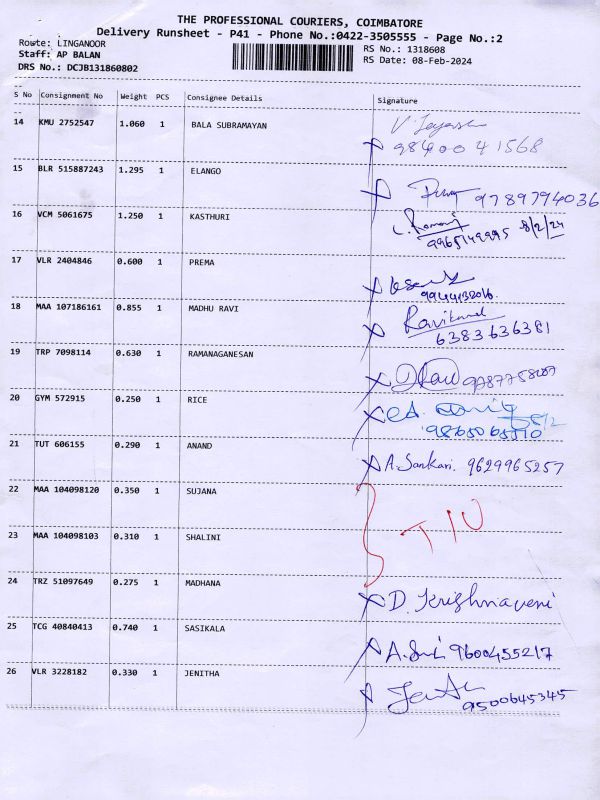 THE PROFESSIONAL COURIERS, COIMBATORE
Delivery Runsheet - P41 - Phone No.:0422-3505555 - Page No.:2
Route: LINGANOOR RS No.: 1318608
Staff: AP BALAN RS Date: 08-Feb-2024
DRS No.: DCJB131860802
S No Consignment No Weight PCS Consignee Details Signature
14 KMU 2752547 1.060 1 BALA SUBRAMAYAN
9840041568
15 BLR 515887243 1.295 1 ELANGO
9789794036
16 VCM 5061675 1.250 1 KASTHURI
9965149995 8/2/24
17 VLR 2404846 0.600 1 PREMA
9944132016
18 MAA 107186161 0.855 1 MADHU RAVI Ravikumal
6383636381
19 TRP 7098114 0.630 1 RAMANAGANESAN
20 GYM 572915 0.250 1 RICE
21 TUT 606155 0.290 1 ANAND A. Sankari. 9629965257
22 MAA 104098120 0.350 1 SUJANA
23 MAA 104098103 0.310 1 SHALINI
24 TRZ 51097649 0.275 1 MADHANA D. Krishnaveni
25 TCG 40840413 0.740 1 SASIKALA 9600455217
26 VLR 3228182 0.330 1 JENITHA
9500645345